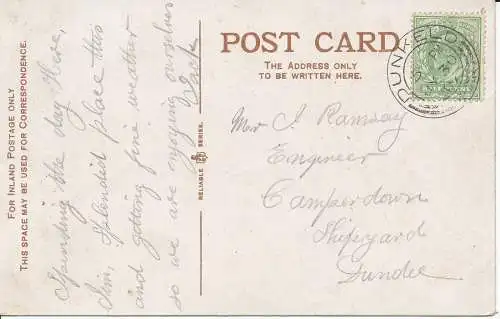 FOR INLAND POSTAGE ONLY
THIS SPACE MAY BE USED FOR CORRESPONDENCE.
Spending the day Here,
Jim, splendid place this
and getting fine weather
so we are injoying ourselves
RELIABLE
SERIES.
POST CARD.
THE ADDRESS ONLY
TO BE WRITTEN HERE.
DUNKELD
Mr J. Ramsay
Engineer
Camperdown
Shipyard
Dundee